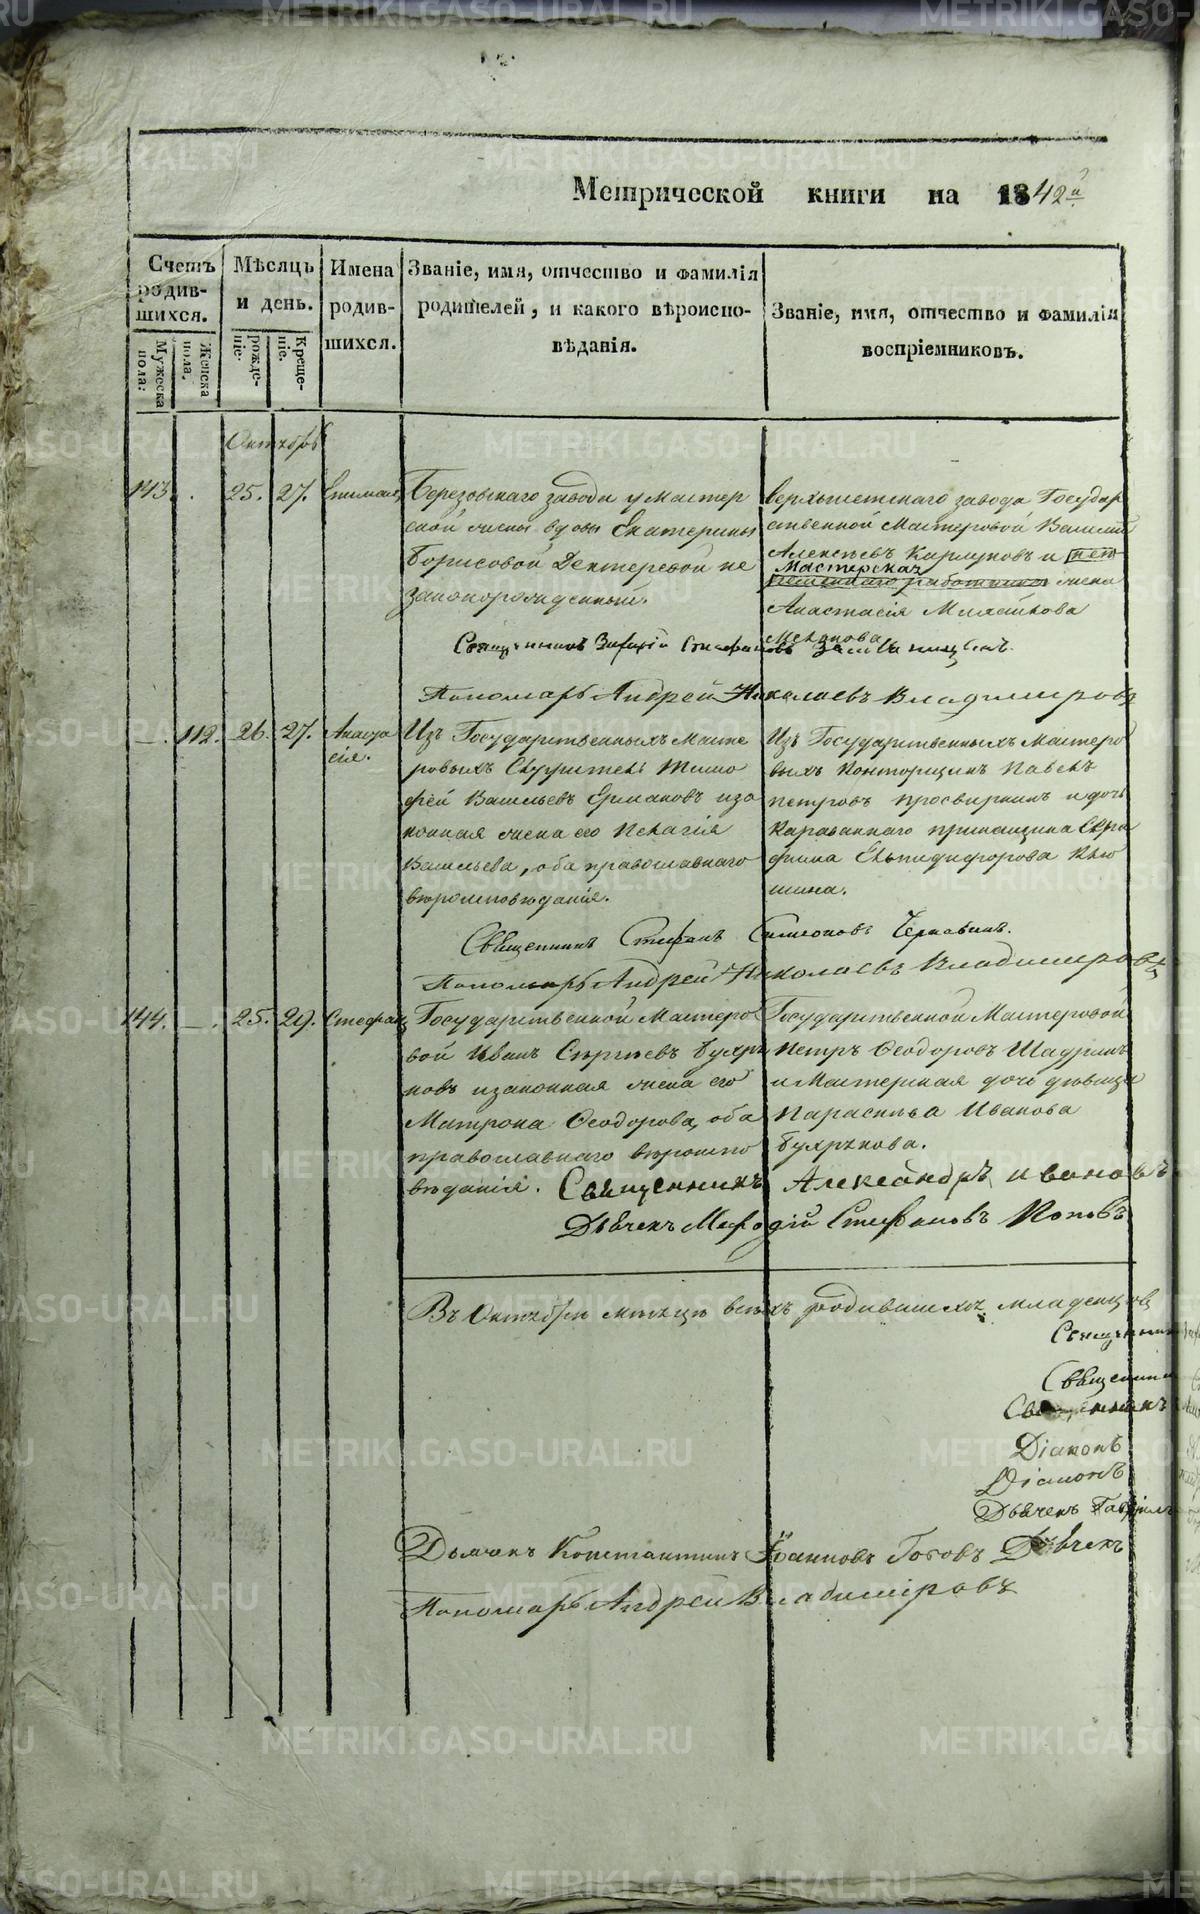 Метрической книги на 1842й
Счетъ родившихся.
Мужеска пола:
Женска пола.
Мѣсяцъ и день.
рождение.
Крещение.
Имена родившихся.
Званіе, имя, отчество и фамилія родителей, и какого вѣроисповѣданія.
Званіе, имя, отчество и фамилія воспріемниковъ.
Октябрь
143. . 25. 27.
Березовскаго завода у мастер
ской жены вдовы Екатерины
Борисовой Дектеревой не
законорожденный.
Верхъисетскаго завода Государ
ственной Мастеровой Василій
Алексѣевъ Кармуновъ и
Мастерская
жена
Анастасія
Священникъ
Пономарь Андрей Николаевъ Владимировъ
—. 112. 26. 27. Анаста
сія.
Изъ Государственныхъ Масте
ровыхъ Тимо
фей Васильевъ Ермаковъ изо
конная жена его Пелагія
Васильева, оба православнаго
вѣроисповѣданія.
Изъ Государственныхъ Мастеро
выхъ Конторщикъ Павелъ
Петровъ Просвирнинъ и дочь
Караваннаго прикащика Евро
сина Ельпидифорова Кью
шина.
Священникъ Стефанъ Симеоновъ Чернавинъ.
Пономарь Андрей Николаевъ Владимировъ
144. —. 25. 29. Стефанъ
Государственной Мастеро
вой Иванъ Сергѣевъ Бухря
ковъ изаконная жена его
Матрона Ѳеодорова, оба
православнаго вѣроиспо
вѣданія.
Государственной Мастеровой
Петръ Ѳеодоровъ Шадринъ
и Мастерская дочь дѣвица
Параскева Иванова
Бухрякова.
Священникъ Александръ Ивановъ
Дьячекъ Мефодій Стефановъ Поповъ
Въ Октябрѣ мѣсяцѣ всѣхъ родившихъ младенцов
Священник
Священник
Священникъ
Діаконъ
Діаконъ
Дьячекъ Гавріилъ
Дьячекъ Константинъ Іоанновъ Дьячекъ
Пономарь Андрей Владиміровъ
METRIKI.GASO-URAL.RU